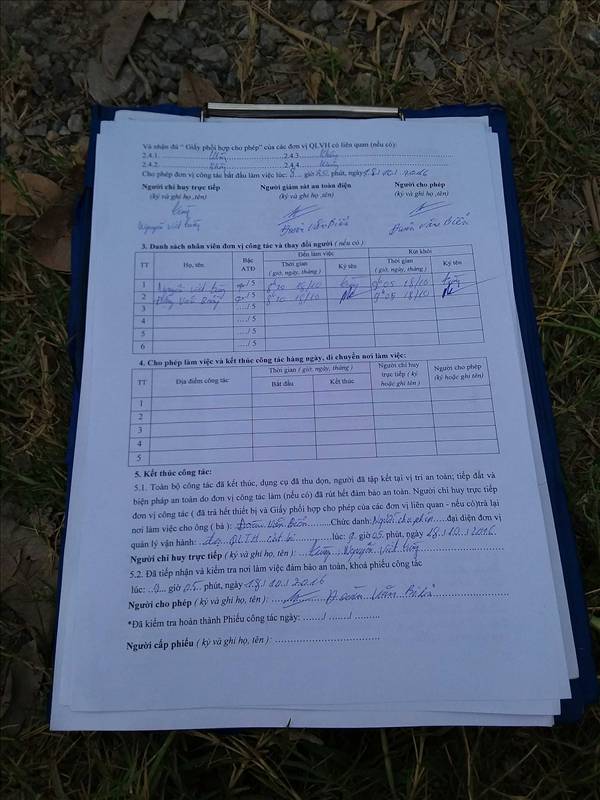 Và nhận đủ “ Giấy phối hợp cho phép” của các đơn vị QLVH có liên quan (nếu có):
2.4.1. Không 2.4.3. Không
2.4.2. Không 2.4.4. Không
Cho phép đơn vị công tác bắt đầu làm việc lúc: 8 giờ phút, ngày 18/10/2016
Người chỉ huy trực tiếp Người giám sát an toàn điện Người cho phép
(ký và ghi họ ,tên) (ký và ghi họ ,tên) (ký và ghi họ ,tên)
Nguyễn Viết Đoàn Văn Biển Đoàn Văn Biển
3. Danh sách nhân viên đơn vị công tác và thay đổi người ( nếu có )
TT Họ, tên Bậc ATĐ Đến làm việc Rút khỏi
Thời gian ( giờ, ngày, tháng ) Ký tên Thời gian ( giờ, ngày, tháng ) Ký tên
1 Nguyễn Viết /5 8h10 18/10 9h05 18/10
2 Văn /5 8h10 18/10 9h05 18/10
3 ..../ 5
4 ..../ 5
5 ..../ 5
6 ..../ 5
4. Cho phép làm việc và kết thúc công tác hàng ngày, di chuyển nơi làm việc:
TT Địa điểm công tác Thời gian ( giờ, ngày, tháng ) Người chỉ huy trực tiếp ( ký hoặc ghi tên ) Người cho phép (ký hoặc ghi tên)
Bắt đầu Kết thúc
1
2
3
4
5
5. Kết thúc công tác:
5.1. Toàn bộ công tác đã kết thúc, dụng cụ đã thu dọn, người đã tập kết tại vị trí an toàn; tiếp đất và
biện pháp an toàn do đơn vị công tác làm (nếu có) đã rút hết đảm bảo an toàn. Người chỉ huy trực tiếp
đơn vị công tác ( đã trả hết thiết bị và Giấy phối hợp cho phép của các đơn vị liên quan - nếu có)trả lại
nơi làm việc cho ông ( bà ): Đoàn Văn Biển Chức danh: Người cho phép đại diện đơn vị
quản lý vận hành: đội QLTH lúc: 9 giờ 05 phút, ngày 18/10/2016
Người chỉ huy trực tiếp ( ký và ghi họ, tên ): Nguyễn Viết
5.2. Đã tiếp nhận và kiểm tra nơi làm việc đảm bảo an toàn, khoá phiếu công tác
lúc: 9 giờ 05 phút, ngày 18/10/2016
Người cho phép ( ký và ghi họ, tên ): Đoàn Văn Biển
*Đã kiểm tra hoàn thành Phiếu công tác ngày: ....../ ....../ .........
Người cấp phiếu ( ký và ghi họ, tên ): ................................